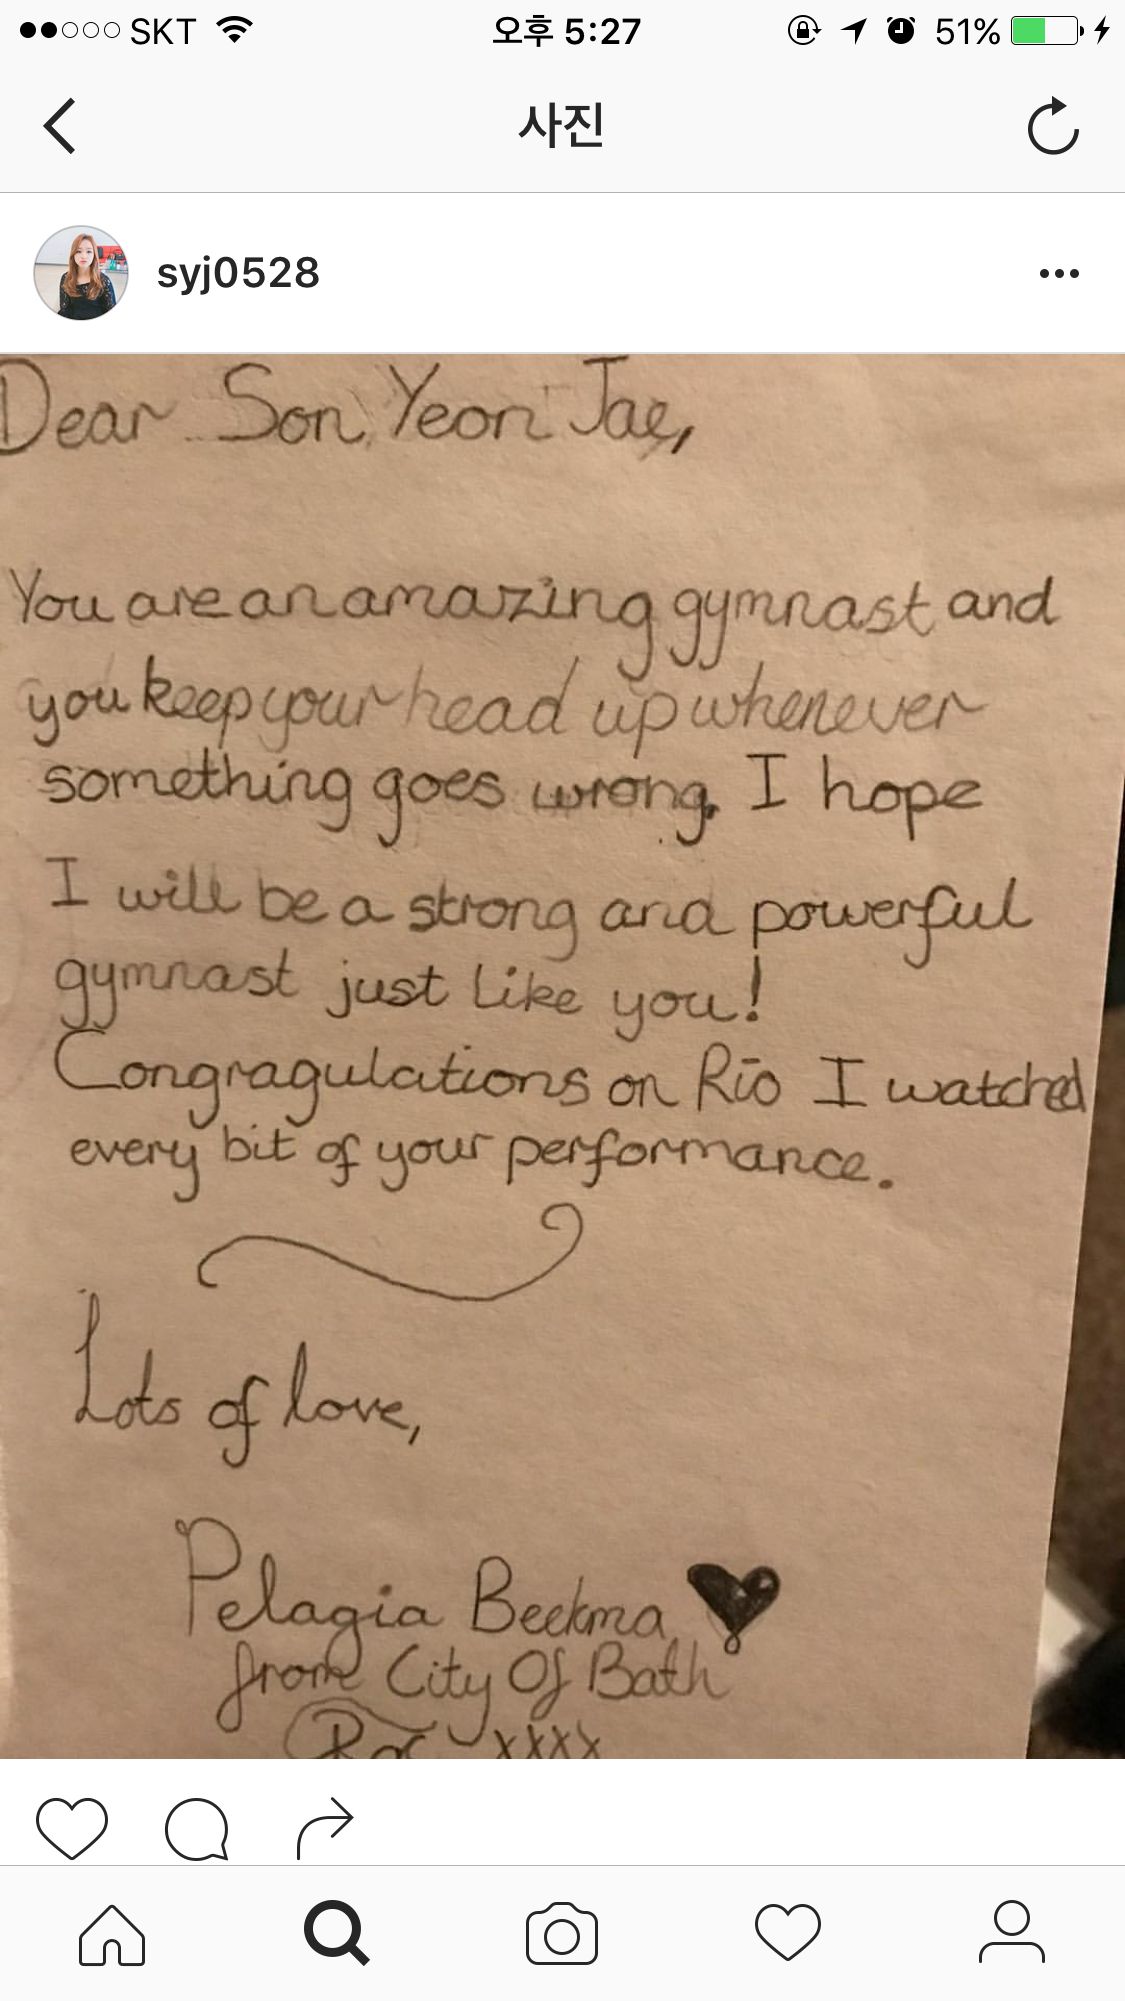 SKT 오후 5:27 51%
사진
syj0528
Dear Son Yeon Jae,
You are an amazing gymnast and
you keep your head up whenever
something goes wrong. I hope
I will be a strong and powerful
gymnast just like you!
Congragulations on Rio I watched
every bit of your performance.
Lots of love,
Pelagia Beekma
from City Of Bath
xxxx